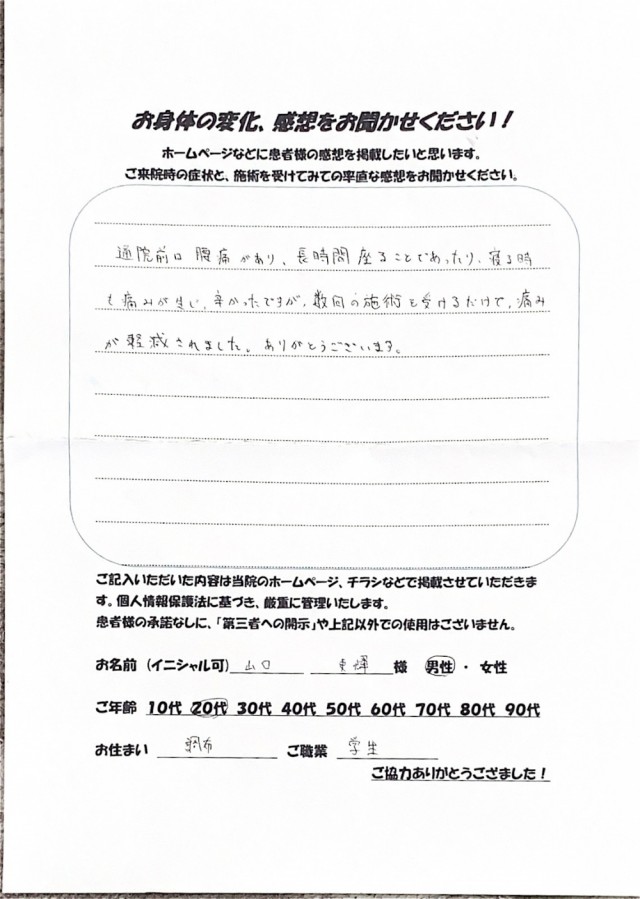 お身体の変化、感想をお聞かせください！
ホームページなどに患者様の感想を掲載したいと思います。
ご来院時の症状と、施術を受けてみての率直な感想をお聞かせください。
通院前は腰痛があり、長時間座ることであったり、寝る時
も痛みが生じ、辛かったですが、数回の施術を受けるだけで、痛み
が軽減されました。ありがとうございます。
ご記入いただいた内容は当院のホームページ、チラシなどで掲載させていただきま
す。個人情報保護法に基づき、厳重に管理いたします。
患者様の承諾なしに、「第三者への開示」や上記以外での使用はございません。
お名前（イニシャル可） 山口 様 男性・女性
ご年齢 10代 20代 30代 40代 50代 60代 70代 80代 90代
お住まい 調布 ご職業 学生
ご協力ありがとうござました！